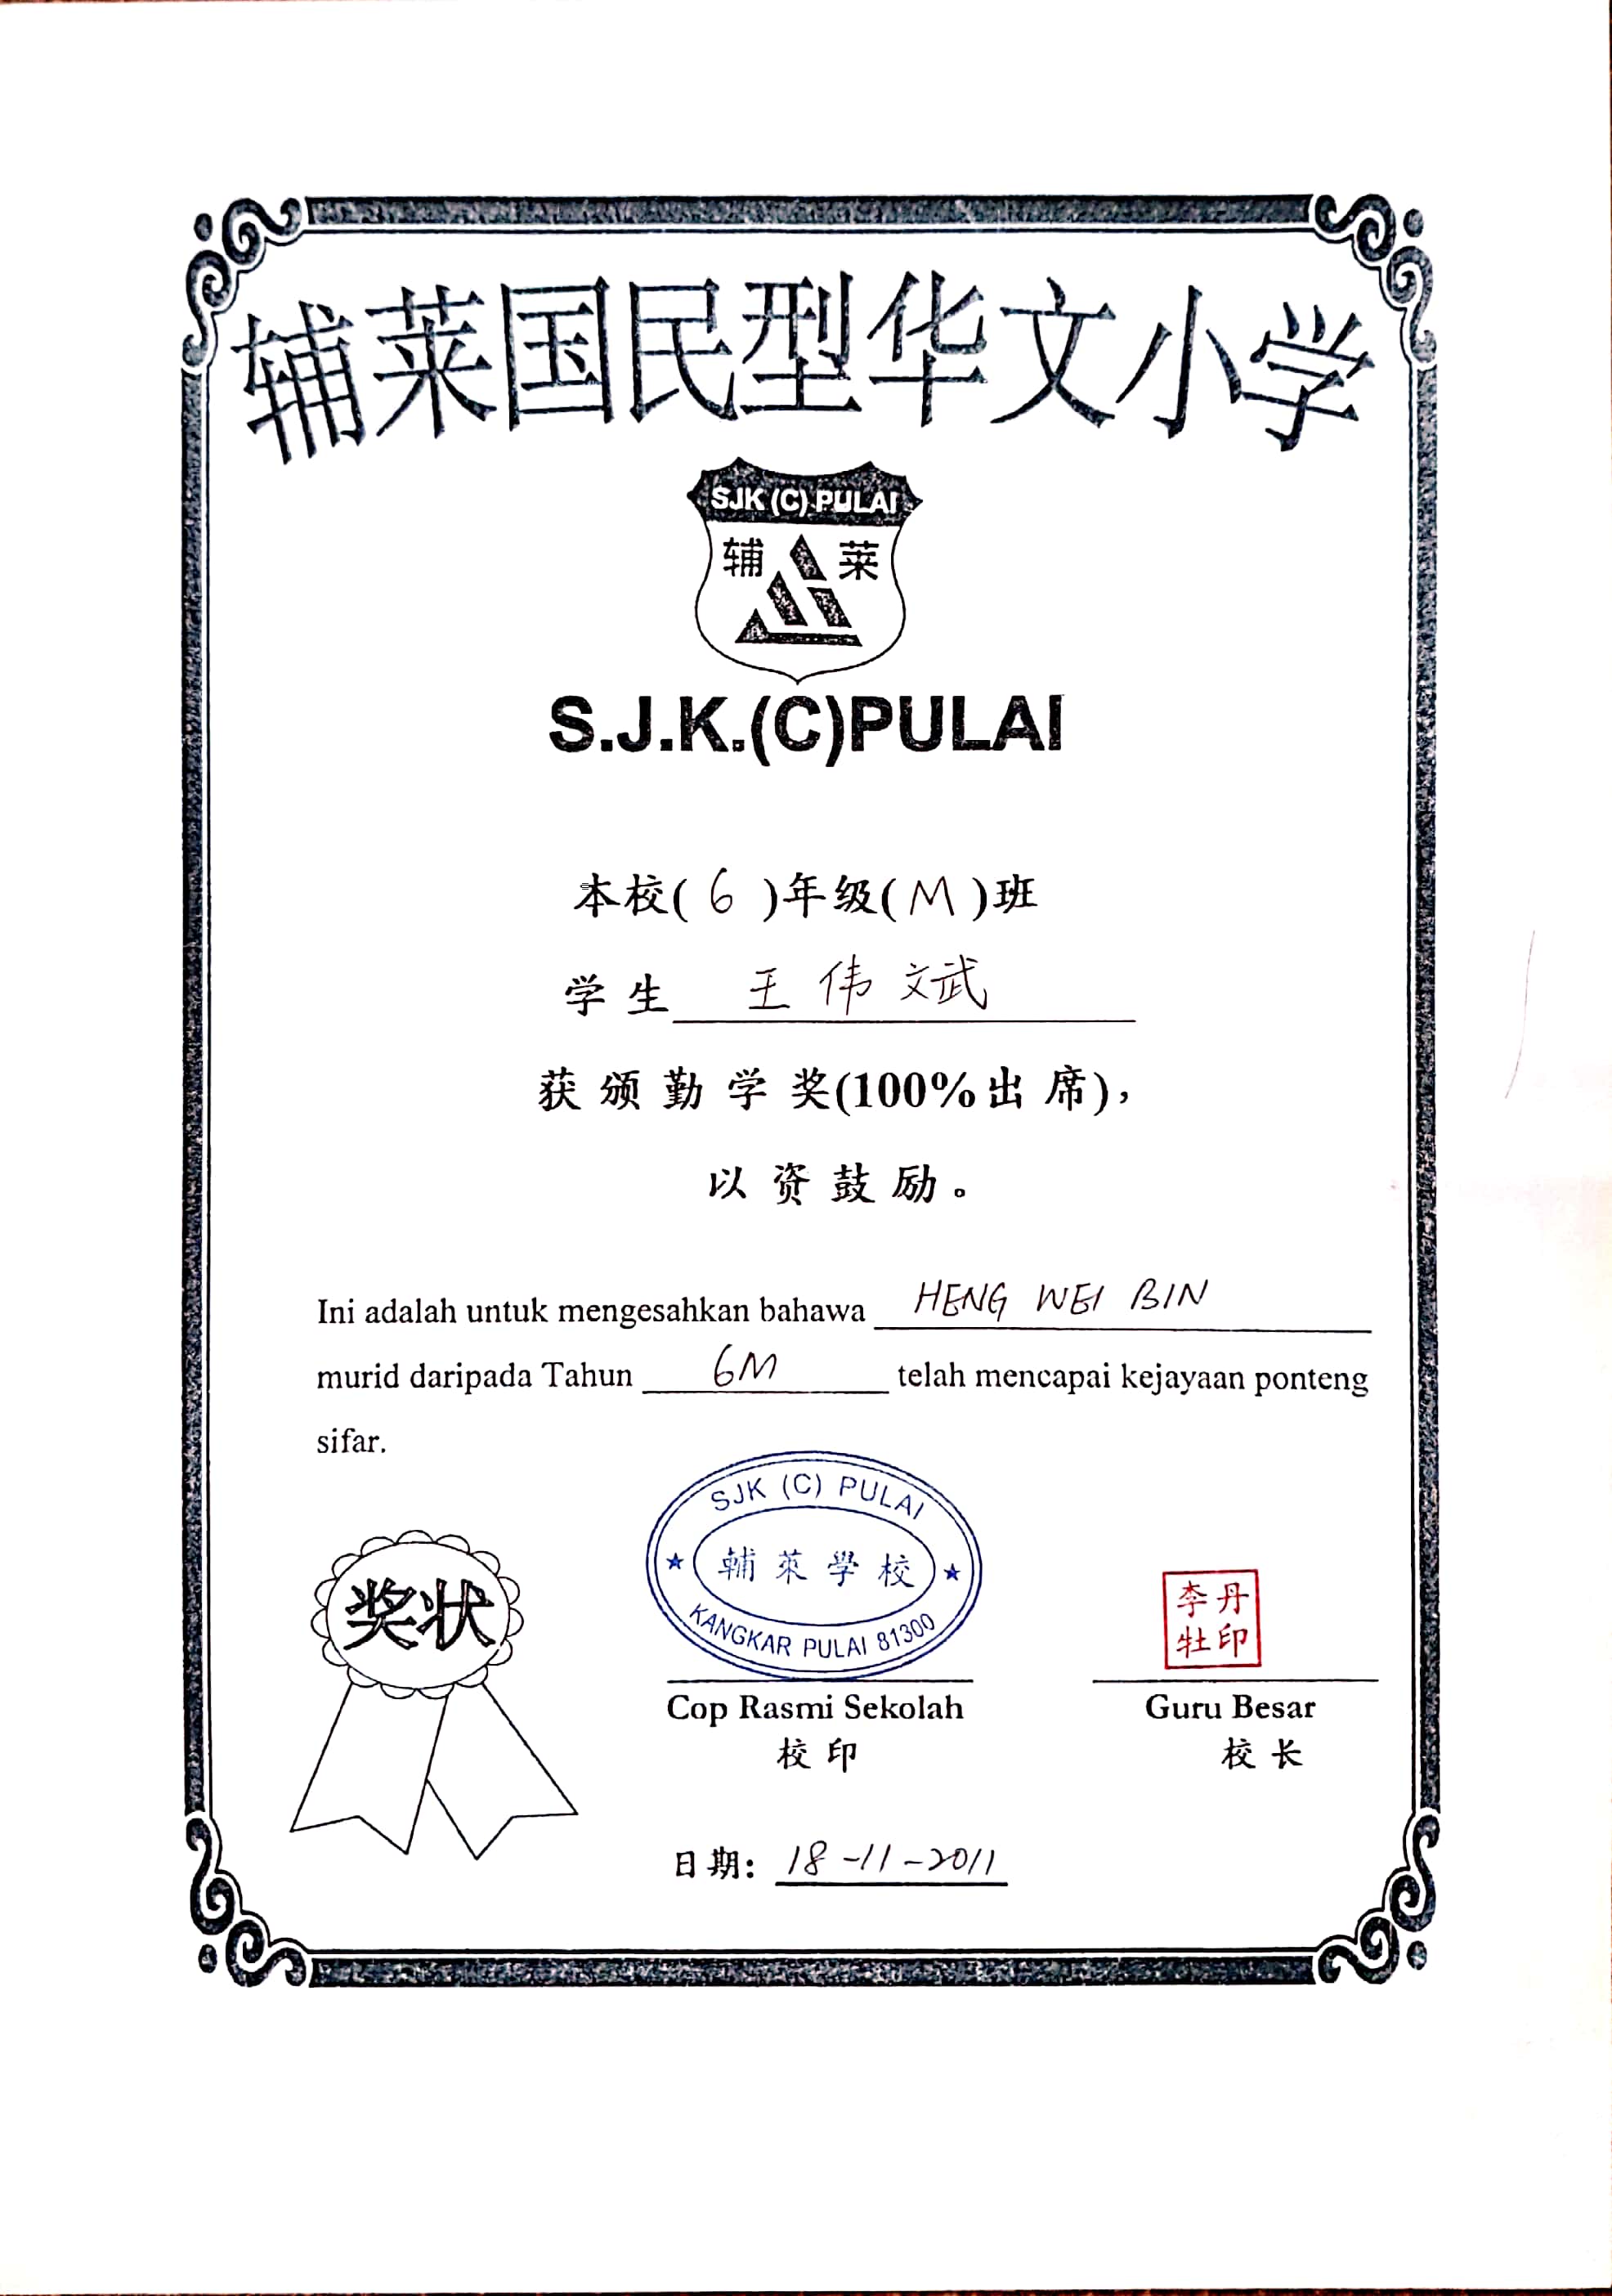 辅莱国民型华文小学
SJK (C) PULAI
辅 莱
S.J.K.(C)PULAI
本校( 6 )年级( M )班
学生 王 伟 斌
获颁勤学奖(100%出席),
以资鼓励。
Ini adalah untuk mengesahkan bahawa HENG WEI BIN
murid daripada Tahun 6M telah mencapai kejayaan ponteng
sifar.
SJK (C) PULAI
★ 輔萊學校 ★
KANGKAR PULAI 81300
奖状
李丹
牡印
Cop Rasmi Sekolah
校印
Guru Besar
校长
日期: 18-11-2011